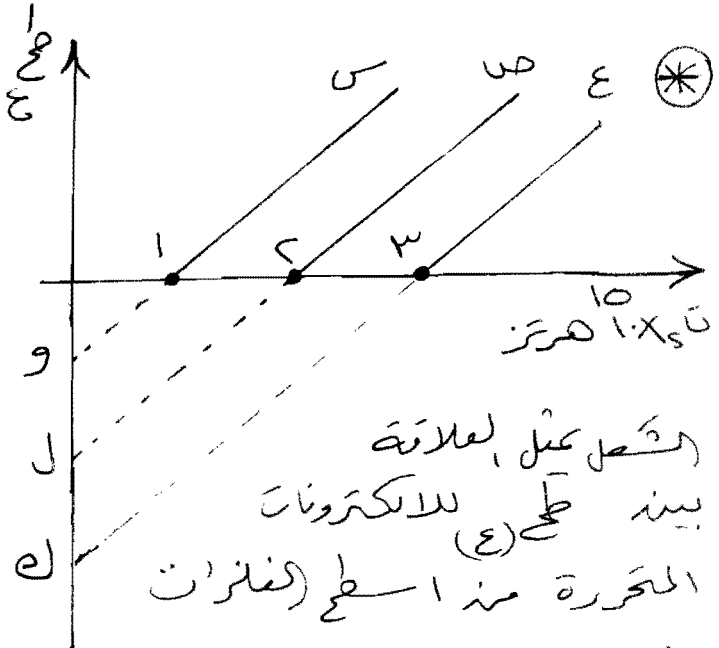 ط ح ع
س ص ع
١ ٢ ٣
١٥
ت د × ١٠ هرتز
و
ل
ك
الشكل يمثل العلاقة
بين ط ح (ع) للالكترونات
المتحررة من اسطح الفلزات